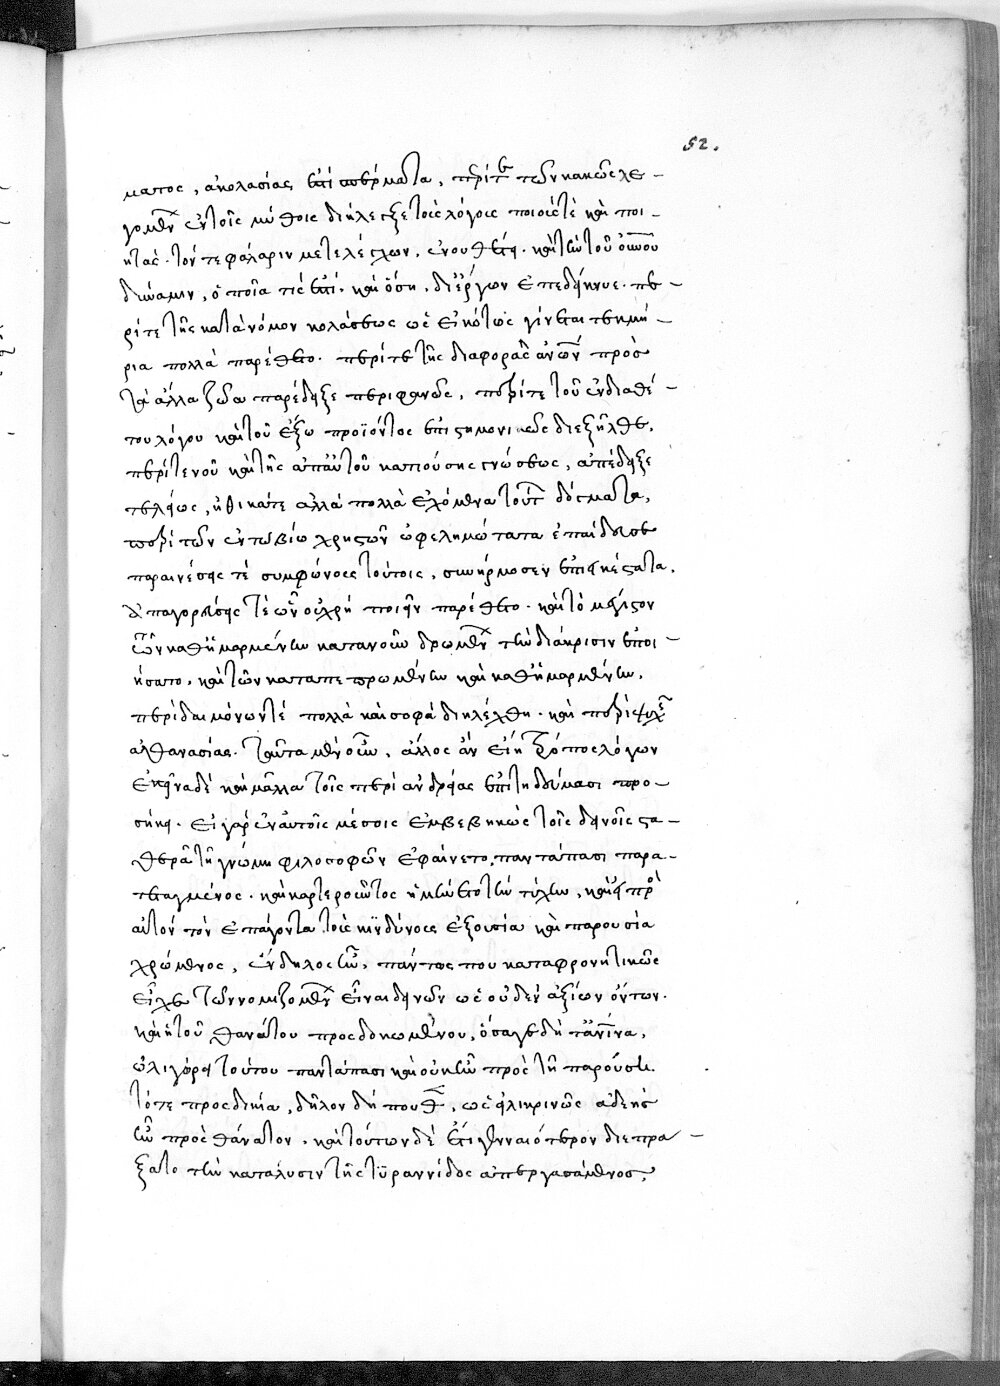 52.
ματος, ἀκολασίας ἐστὶ σπέρματα, περί τε τῶν κακῶς λε-
γομένων ἐν τοῖς μύθοις διήλεγξε τοῖς λόγοις ποιοῖς τὲ καὶ ποι-
ητάς. τόν τε φάλαριν μετελέγχων, ἐνουθέτει. καὶ τὴν τοῦ ὄντος
δύναμιν, ὁποῖα τίς ἐστί. καὶ ὅση, δι' ἔργων ἐπεδείκνυε. πε-
ρί τε τῆς κατὰ νόμον κολάσεως ὡς εἰκότως γίνεται τεκμή-
ρια πολλὰ παρέθετο. περί τε τῆς διαφορᾶς ἀνῶν πρὸς
τὰ ἄλλα ζῶα παρέδειξε περιφανῶς, περί τε τοῦ ἐνδιαθέ-
του λόγου καὶ τοῦ ἔξω προϊόντος ἐπιστημονικῶς διεξῆλθε,
περί τε νοῦ καὶ τῆς ἀπ' αὐτοῦ κατιούσης γνώσεως, ἀπέδειξε
τελείως, ἠθικά τε ἀλλὰ πολλὰ ἐχόμενα τούτων δόγματα,
περὶ τῶν ἐν τῷ βίῳ χρηστῶν ὠφελιμώτατα ἐπαίδευσε
παραινέσεις τέ συμφώνους τούτοις, συνήρμοσεν ἐπιεικέστατα,
ἀπαγορεύσεις τὲ ὧν οὐ χρή ποιεῖν παρέθετο. καὶ τὸ μέγιστον
τῶν καθ' εἱμαρμένην κατανοῦν δρωμένων τὴν διάκρισιν ἐποι-
ήσατο, καὶ τῶν κατὰ πεπρωμένην καὶ καθ' εἱμαρμένην,
περὶ δαιμόνων τέ πολλὰ καὶ σοφὰ διηλέχθη. καὶ περὶ ψυχῆς
ἀθανασίας. ταῦτα μὲν οὖν, ἄλλος ἂν εἴη τρόπος λόγων
ἐκεῖνα δὲ καὶ μᾶλλα τοῖς περὶ ἀνδρείας ἐπιτηδεύμασι προ-
σήκει. εἰ γὰρ ἐν αὐτοῖς μέσοις ἐμβεβηκὼς τοῖς δεινοῖς στα-
θερᾷ τῇ γνώμῃ φιλοσοφῶν ἐφαίνετο, παντάπασι παρα-
τεταγμένος. καὶ καρτεροῦντος ἠμύνετο τὴν τύχην, καὶ εἰ πρὸς
αὐτόν τὸν ἐπάγοντα τοὺς κινδύνους ἐξουσία καὶ παρουσία
χρώμενος, ἔνδηλος ἦν, πάντως που καταφρονητικῶς
εἶχε τῶν νομιζομένων εἶναι δεινῶν ὡς οὐδὲν ἀξίων ὄντων.
καὶ εἰ τοῦ θανάτου προσδοκωμένου, ὅσα γε δὴ τἀνθρώπινα,
ὠλιγόρει τούτου παντάπασι καὶ οὐκ ἦν πρὸς τῇ παρούσῃ
τότε προσδοκία, δῆλον δή που θεν, ὡς εἰλικρινῶς ἀδεὴς
ἦν πρὸς θάνατον. καὶ τούτων δὲ ἔτι γενναιότερον διεπρα-
ξατο τὴν κατάλυσιν τῆς τυραννίδος ἀπεργασάμενος,